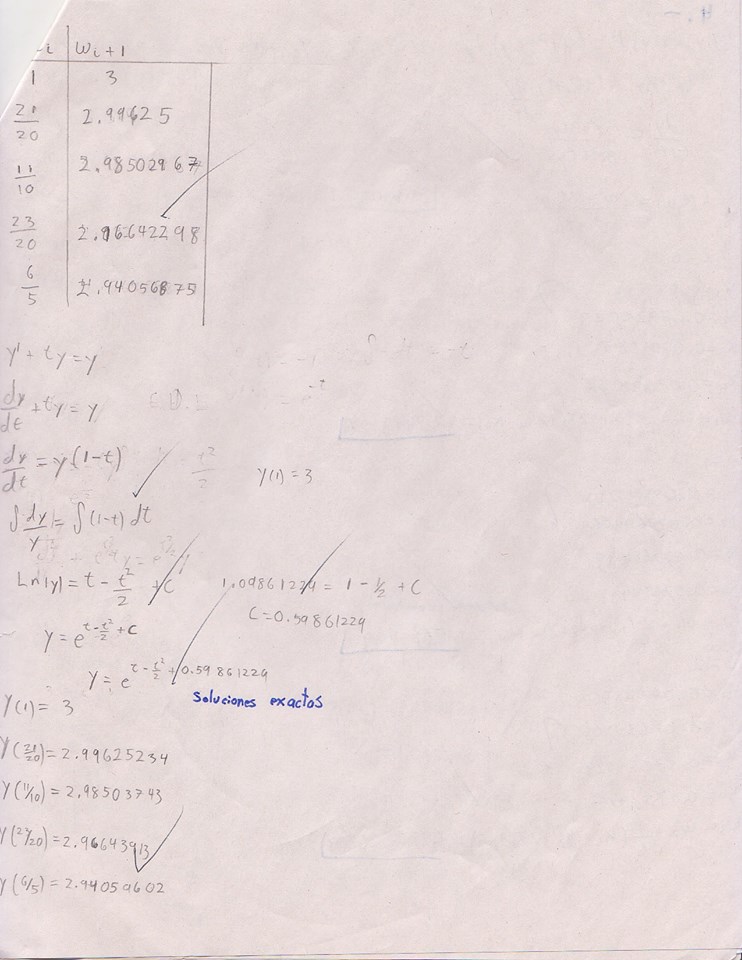 i | Wi+1
1 | 3
21/20 | 2.99625
11/10 | 2.98502967
23/20 | 2.96642298
6/5 | 2.94056875
y' + ty = y
dy/dt + ty = y
dy/dt = y(1-t)
y(1) = 3
∫ dy/y = ∫ (1-t) dt
Ln|y| = t - t²/2 + C    1.09861229 = 1 - 1/2 + C
C = 0.59861229
y = e^(t - t²/2 + C)
y = e^(t - t²/2 + 0.59861229)
Soluciones exactos
y(1) = 3
y(21/20) = 2.99625234
y(11/10) = 2.98503743
y(23/20) = 2.96643913
y(6/5) = 2.94059602